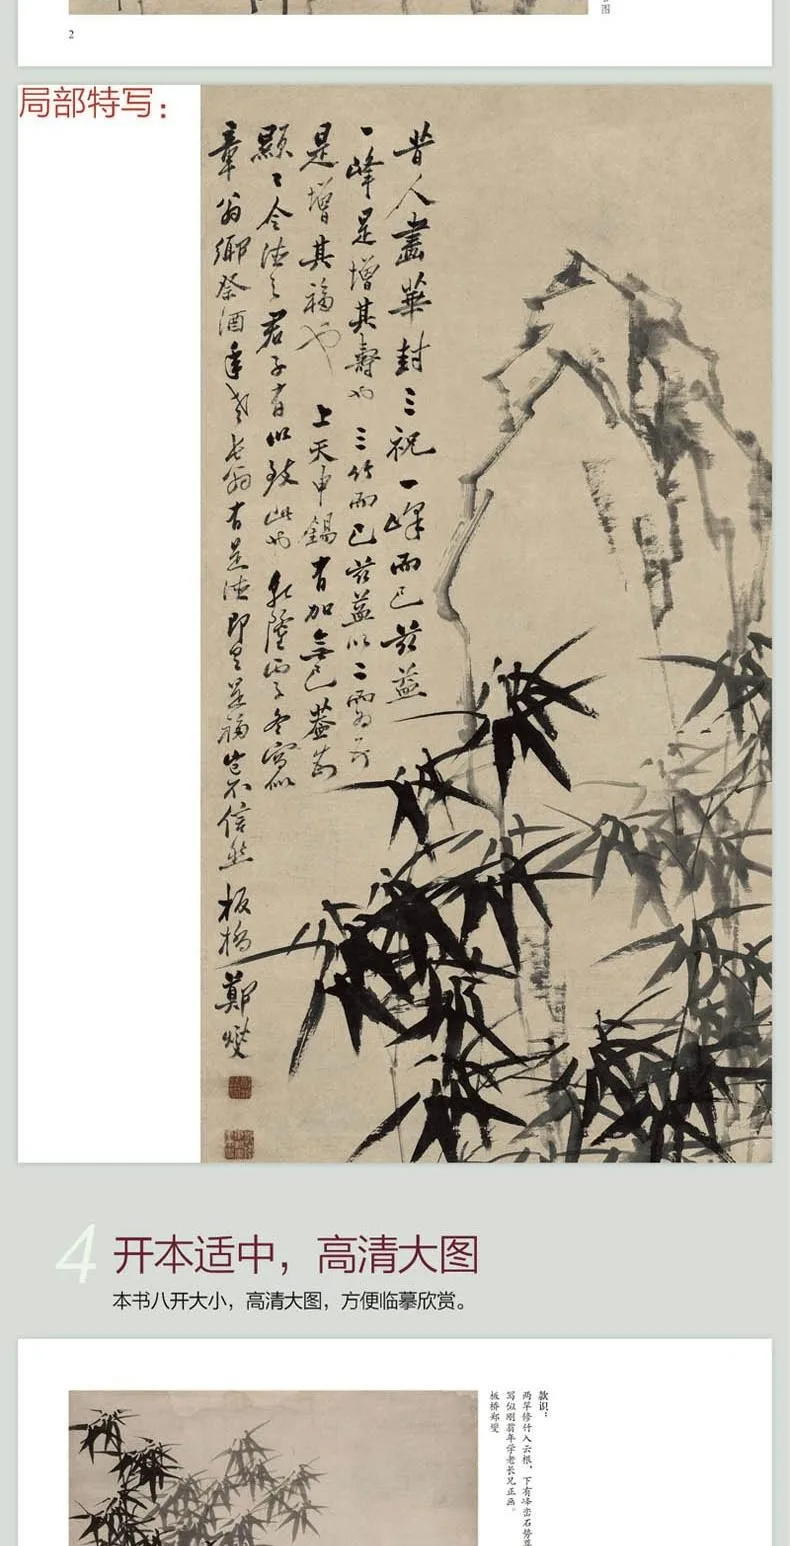 图
2
局部特写：
昔人畫華封三祝一峰而已玆益
一峰是增其壽也三竹而已玆益以二而為五
是增其福也上天申錫有加無已蓋為
顯々令德之君子有以致此也乾隆丙子冬寫似
章翁鄉祭酒年老長翁有是德即是福豈不信然板橋
鄭燮
4
开本适中，高清大图
本书八开大小，高清大图，方便临摹欣赏。
款识：
两竿修竹入云根，下有峰峦石势尊
写似刚翁年学老长兄正画。
板桥郑燮